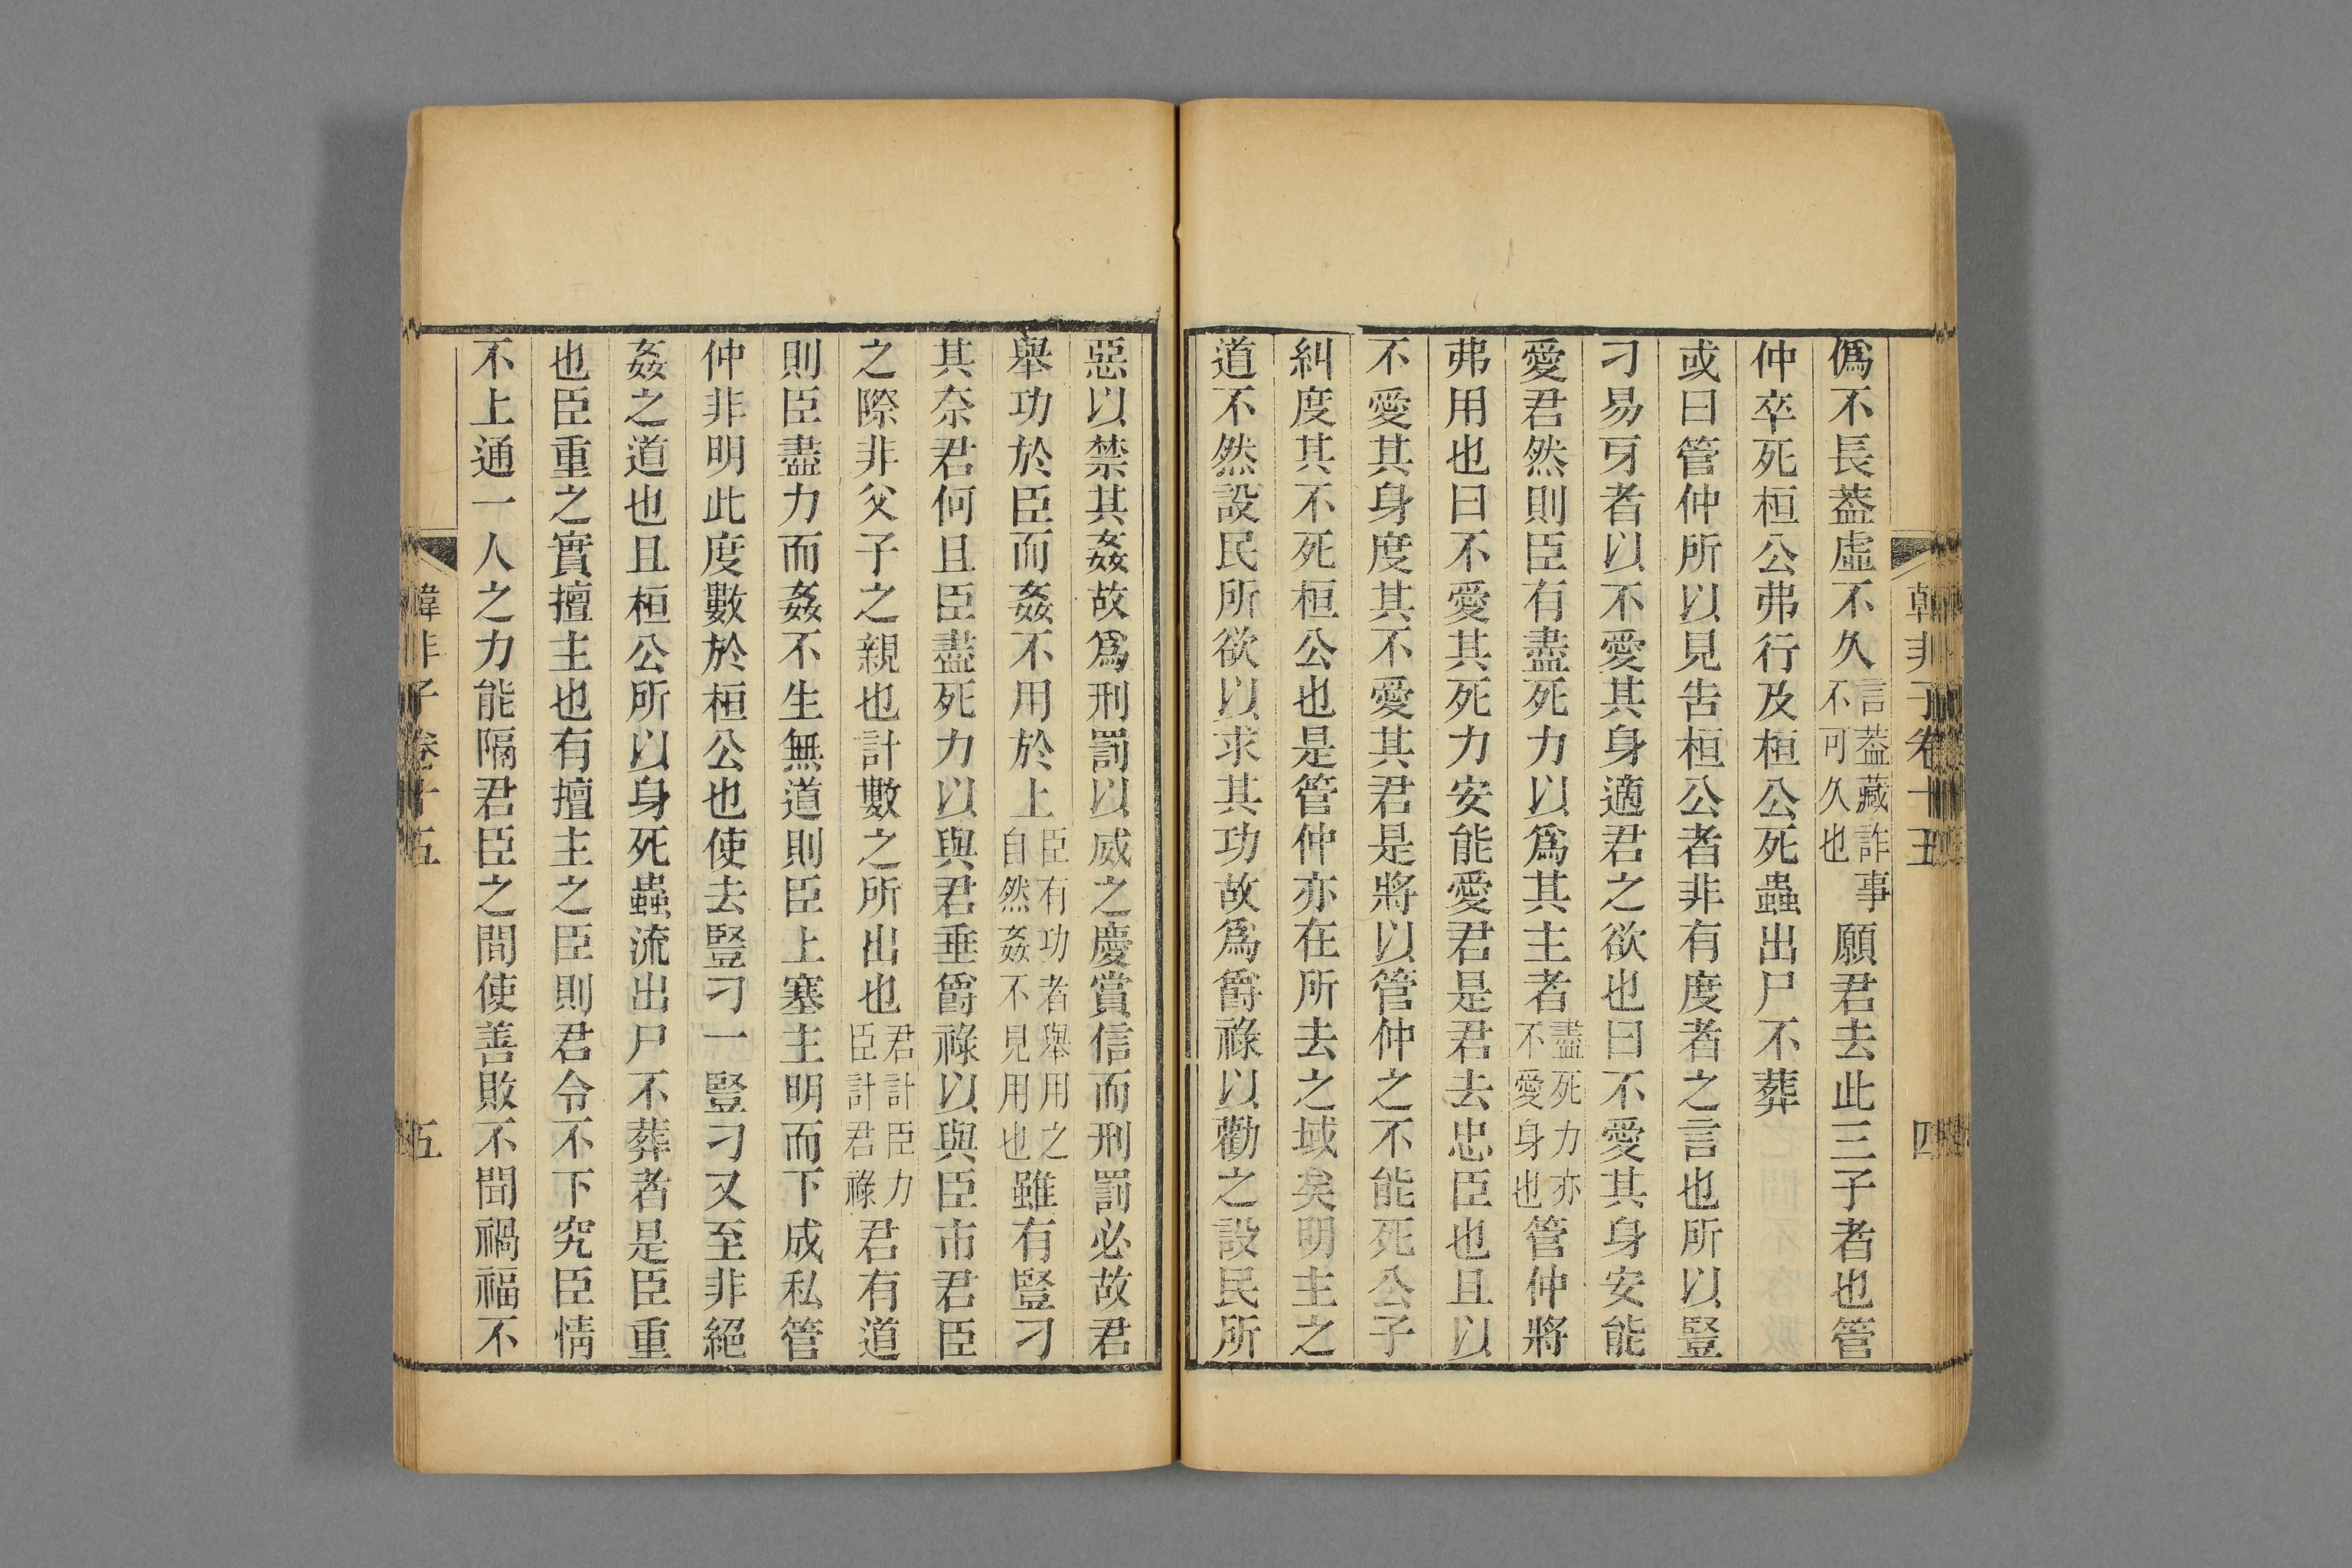 韓非子卷十五
四
僞不長葢虛不久言葢藏詐事不可久也願君去此三子者也管
仲卒死桓公弗行及桓公死蟲出尸不葬
或曰管仲所以見告桓公者非有度者之言也所以豎
刁易牙者以不愛其身適君之欲也曰不愛其身安能
愛君然則臣有盡死力以爲其主者盡死力亦不愛身也管仲將
弗用也曰不愛其死力安能愛君是君去忠臣也且以
不愛其身度其不愛其君是將以管仲之不能死公子
糾度其不死桓公也是管仲亦在所去之域矣明主之
道不然設民所欲以求其功故爲爵祿以勸之設民所
惡以禁其姦故爲刑罰以威之慶賞信而刑罰必故君
舉功於臣而姦不用於上臣有功者舉用之自然姦不見用也雖有豎刁
其奈君何且臣盡死力以與君垂爵祿以與臣市君臣
之際非父子之親也計數之所出也君計臣力臣計君祿君有道
則臣盡力而姦不生無道則臣上塞主明而下成私管
仲非明此度數於桓公也使去豎刁一豎刁又至非絕
姦之道也且桓公所以身死蟲流出尸不葬者是臣重
也臣重之實擅主也有擅主之臣則君令不下究臣情
不上通一人之力能隔君臣之間使善敗不聞禍福不
韓非子卷十五
五